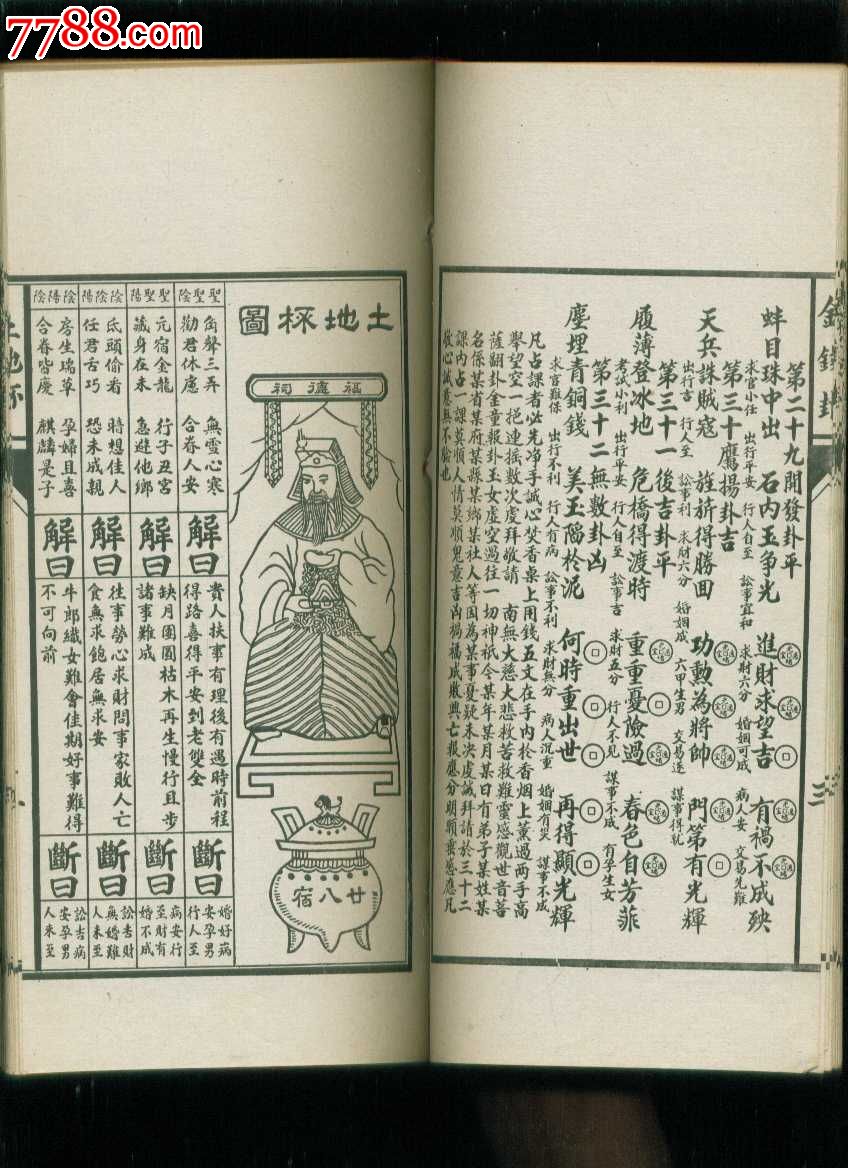 7788.com
第二十九開發卦平
蚌目珠中出 石内玉争光 進財求望吉 有禍不成殃
求官小任 出行平安 行人自至 訟事宜和 求財六分 婚姻可成 病人安 交易先難
第三十鷹揚卦吉
天兵誅賊寇 旌旂得勝回 功勳為將帥 門第有光輝
出行吉 行人至 訟事利 求財六分 婚姻成 六甲生男 交易遂 謀事得就
第三十一後吉卦平
履薄登冰地 危橋得渡時 重重憂險過 春色自芳菲
考試小利 出行平安 行人自至 訟事吉 求財五分 行人不見 謀事不成 有孕生女
第三十二無數卦凶
塵埋青銅錢 美玉陷於泥 何時重出世 再得顯光輝
求官難保 出行不利 行人有病 訟事不利 求財無分 病人沉重 婚姻有災 謀事不成
凡占課者必先净手誠心焚香桌上用錢五文在手内於香烟上薰過两手高
舉望空一挹連摇數次虔拜敬請 南無大慈大悲救苦救難靈感觀世音菩
薩翻卦金童報卦玉女虚空過往一切神祇今某年某月某日有弟子某姓某
名係某省某府某縣某鄉某社人等因為某事憂疑未决虔誠拜請於三十二
課内占一課莫順人情莫順鬼意吉凶禍福成敗興亡報應分明願垂感應凡
敬心誠意無不驗也
土地杯圖
福德祠
廿八宿
聖聖陰
角聲三弄 無雪心寒
勸君休慮 合眷人安
解曰
貴人扶事有理後有遇時前程
得路喜得平安到老雙全
斷曰
婚好病
安孕男
行人至
聖聖陽
元宿金龍 行子丑宮
藏身在未 急避他鄉
解曰
缺月團圓枯木再生慢行且步
諸事難成
斷曰
病安行
至財有
婚不成
陰陰陽
氐頭偷看 時想佳人
任君舌巧 恐未成親
解曰
往事勞心求財問事家敗人亡
食無求飽居無求安
斷曰
訟吉財
無婚難
人未至
陰陽陰
房生瑞草 孕婦且喜
合眷皆慶 麒麟是子
解曰
牛郎織女難會佳期好事難得
不可向前
斷曰
訟吉病
安孕男
人未至
土地杯